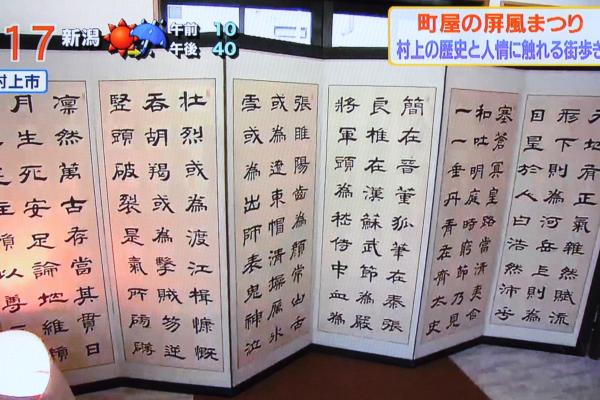 17 新潟 午前 10
午後 40
村上市
町屋の屏風まつり
村上の歴史と人情に触れる街歩き
天地有正氣雜然賦流
形下則為河岳上則為
日星於人曰浩然沛乎
塞蒼冥皇路當清夷含
和吐明庭時窮節乃見
一一垂丹青在齊太史
簡在晉董狐筆在秦張
良椎在漢蘇武節為嚴
將軍頭為嵇侍中血為
張睢陽齒為顏常山舌
或為遼東帽清操厲冰
雪或為出師表鬼神泣
壯烈或為渡江楫慷慨
吞胡羯或為擊賊笏逆
豎頭破裂是氣所磅礴
凛然萬古存當其貫日
月生死安足論地維頼